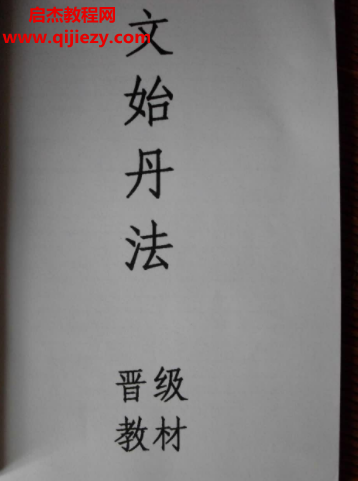 启杰教程网
www.qijiezy.com
文始丹法
晋级
教材